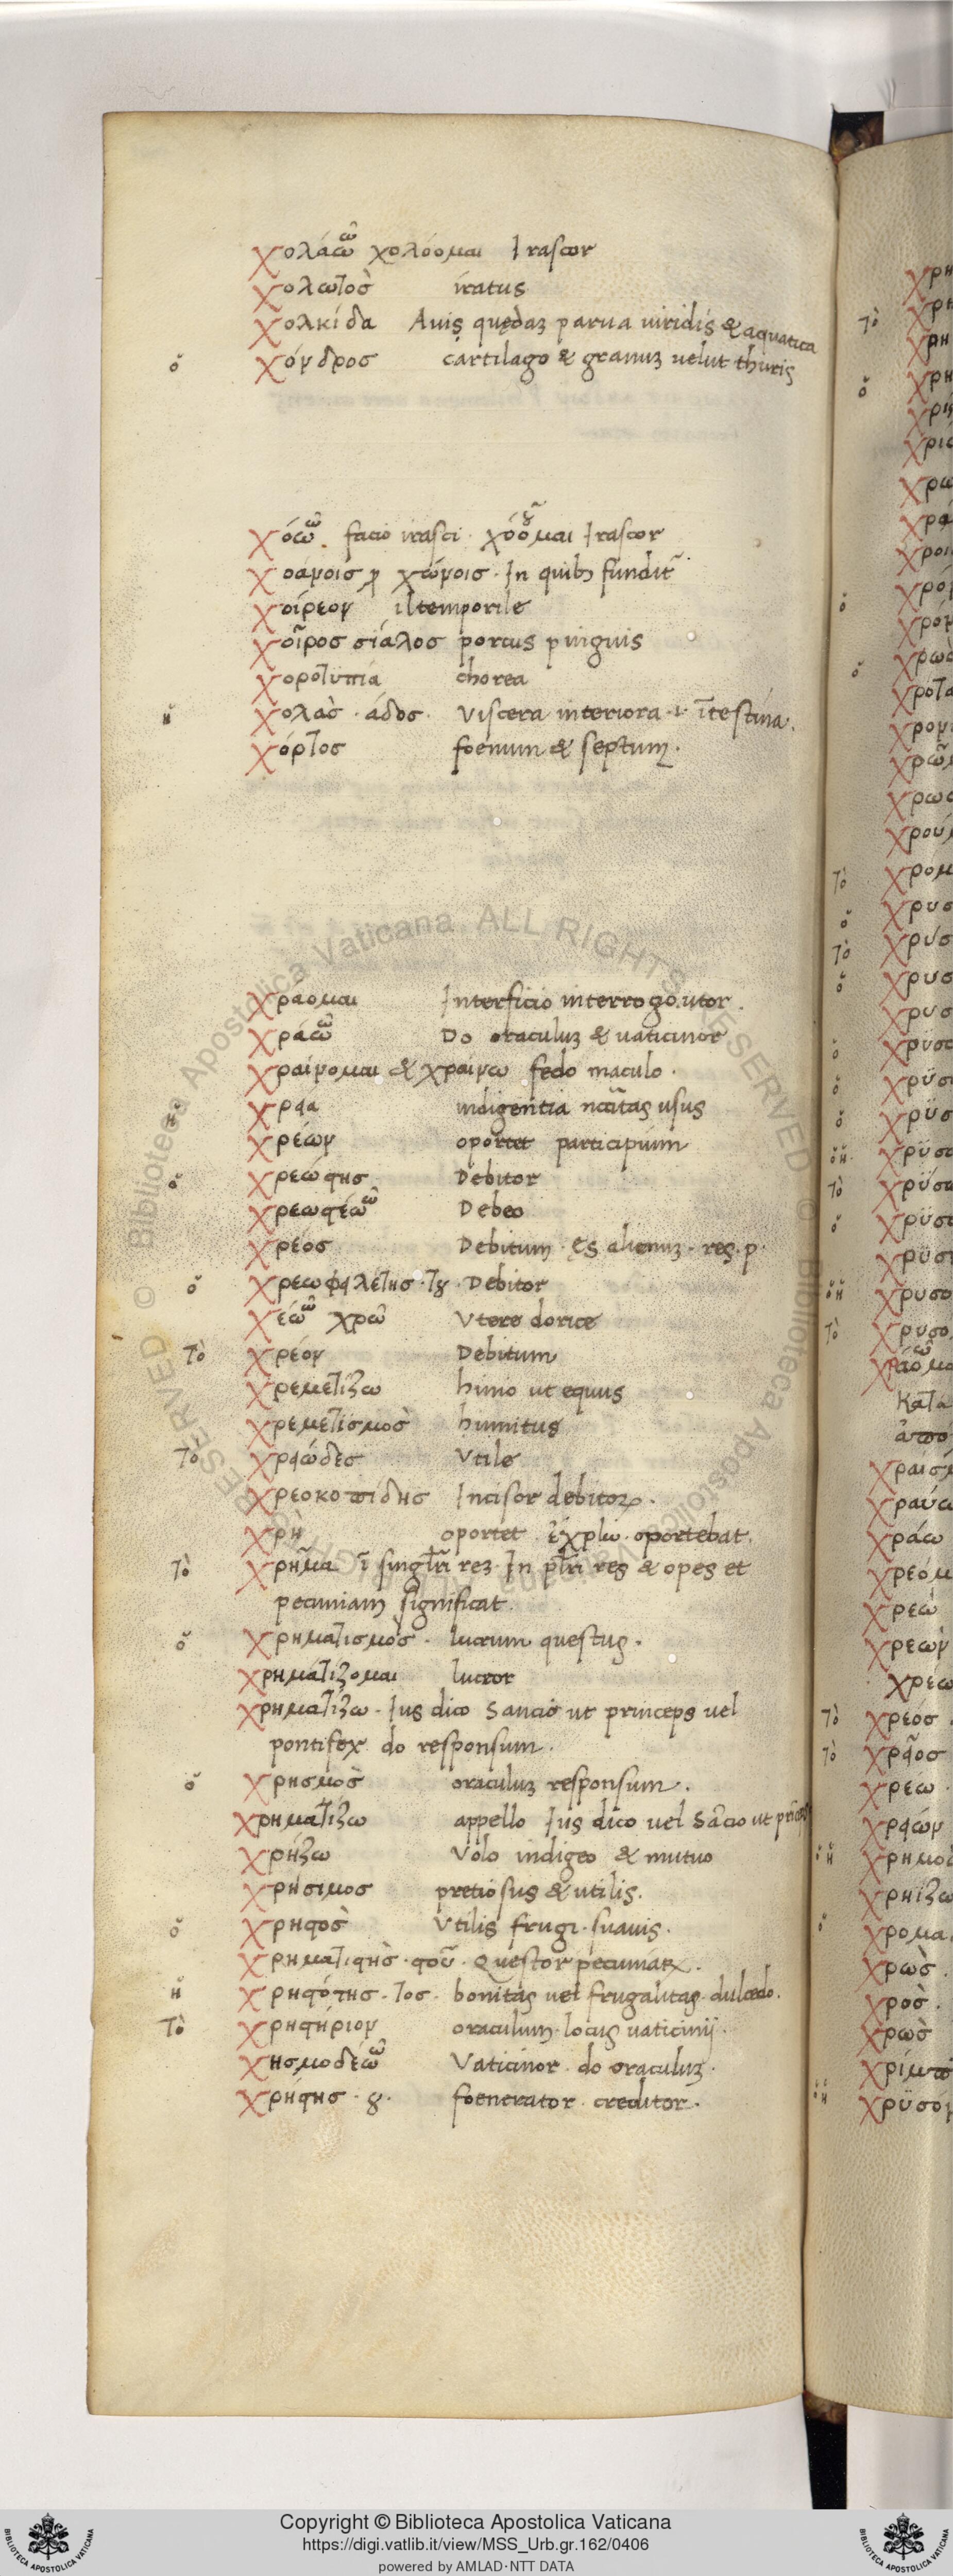 χολάω ῶ χολόομαι Irascor
χολωτὸσ iratus
χολκίδα Auis quędaꝫ parua uiridis & aquatica
ὁ χόνδροσ cartilago & granuꝫ uelut thuris
χόω ῶ. facio irasci. χόομαι οῦ Irascor
χοανοισ χώνοισ. In quibꝫ fundit̃
χοίρεον
χοῖροσ σιάλοσ porcus pinguis
χοροτυπία chorea
ἡ χολὰσ. άδοσ. Viscera interiora. ĩtestina.
χόρτοσ foenum & septum.
χράομαι Interficio interrogo. utor.
χράω ῶ Do oraculuꝫ & uaticinor
χραίνομαι & χραίνω fedo maculo.
χρεία indigentia nc̃itas usus
χρέών oportet participium
ὁ χρεώστησ Debitor
χρεωστέω ῶ Debeo
χρέοσ Debitum. ęs alienuꝫ. res. p.
ὁ χρεωφειλέτησ. του. Debitor
χέω ῶ χρῶ Vtere dorice
τὸ χρέον Debitum
χρεμετίζω hinio ut equus
χρεμετισμὸσ hinnitus
τὸ χρειώδεσ Vtile
χρεοκοπίδησ Incisor debitoꝝ.
χρὴ oportet. ἐχρῆν. oportebat.
τὸ χρῆμα ĩ singl̃ri reꝫ. In pl̃ri res & opes et
pecuniam significat.
ὁ χρηματισμὸσ. lucrum questus.
χρηματίζομαι lucror
χρηματίζω. Ius dico Sancio ut princeps uel
pontifex do responsum.
ὁ χρησμὸσ oraculuꝫ responsum.
χρηματίζω appello Ius dico uel Sãcio ut
χρήζω Volo indigeo & mutuo
χρήσιμοσ pretiosus & utilis.
ὁ χρηστὸσ Vtilis frugi. suauis.
χρηματιστὴσ. στοῦ. Questor pecuniaꝝ.
ἡ χρηστότησ. τοσ. bonitas uel frugalitas. dulcedo.
τὸ χρηστήριον oraculum. locus uaticinij.
χησμοδέω ῶ Vaticinor. do oraculuꝫ.
χρήστησ. ου. foenerator. creditor.
Copyright © Biblioteca Apostolica Vaticana
https://digi.vatlib.it/view/MSS_Urb.gr.162/0406
powered by AMLAD·NTT DATA